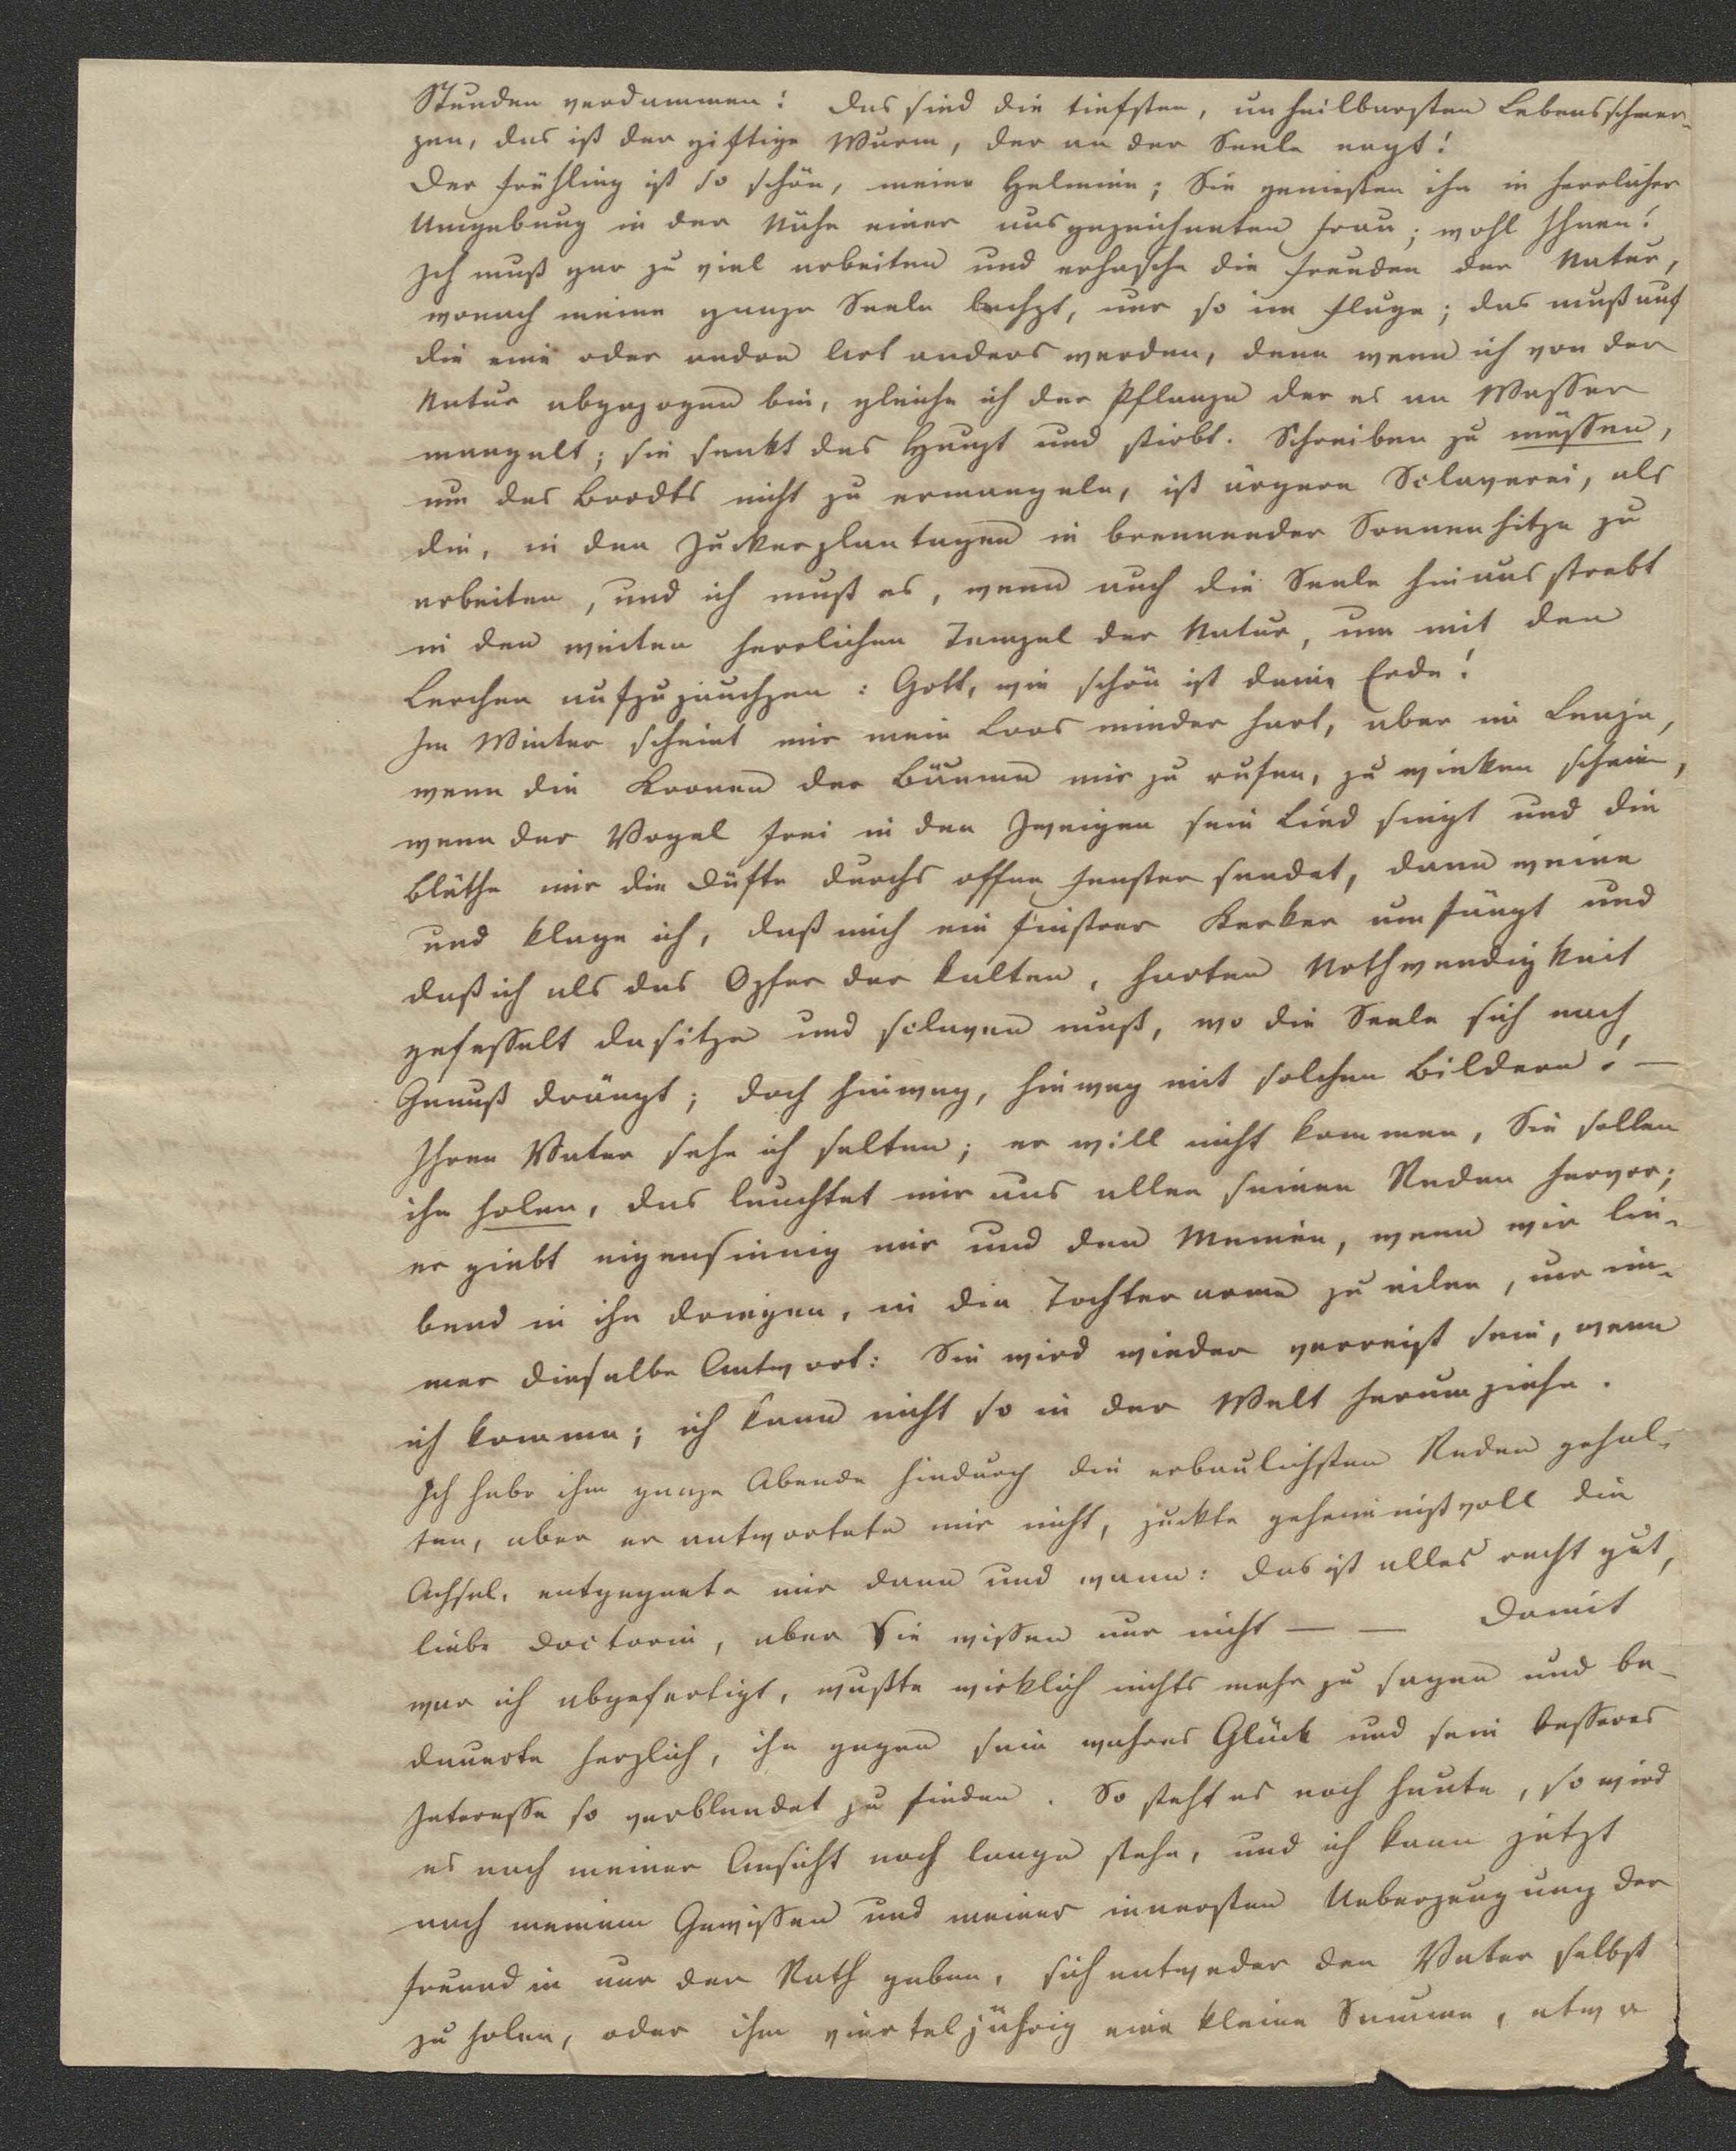 Stunden verdammen! Das sind die tiefsten, unheilbarsten Lebensschmer-
zen, das ist der giftige Wurm, der an der Seele nagt!
Der Frühling ist so schön, meine Helmine; Sie genießen ihn in herrlicher
Umgebung in der Nähe einer ausgezeichneten Frau; wohl Ihnen!
Ich muß gar zu viel arbeiten und erhasche die Freuden der Natur,
wonach meine ganze Seele lechzt, nur so im Fluge; das muß auf
die eine oder andre Art anders werden, denn wenn ich von der
Natur abgezogen bin, gleiche ich der Pflanze der es an Wasser
mangelt; sie senkt das Haupt und stirbt. Schreiben zu müssen,
um des Brodts nicht zu ermangeln, ist ärgere Sclaverei, als
die, in den Zuckerplantagen in brennender Sonnenhitze zu
arbeiten, und ich muß es, wenn auch die Seele hinaus strebt
in den weiten herrlichen Tempel der Natur, um mit den
Lerchen aufzujauchzen: Gott, wie schön ist deine Erde!
Im Winter scheint mir mein Loos minder hart, aber im Lenze,
wenn die Kronen der Bäume mir zu rufen, zu winken scheinen,
wenn der Vogel frei in den Zweigen sein Lied singt und die
Blüthe mir die Düfte durchs offne Fenster sendet, dann weine
und klage ich, daß mich ein finstrer Kerker umfängt und
daß ich als das Opfer der kalten, harten Nothwendigkeit
gefesselt dasitze und sclaven muß, wo die Seele sich nach
Genuß drängt; doch hinweg, hinweg mit solchen Bildern! —
Ihren Vater sehe ich selten; er will nicht kommen, Sie sollen
ihn holen, das leuchtet mir aus allen seinen Reden hervor;
er giebt eigensinnig mir und den Meinen, wenn wir lie-
bend in ihn dringen, in die Tochterarme zu eilen, nur im-
mer dieselbe Antwort: Sie wird wieder verreist sein, wenn
ich komme; ich kann nicht so in der Welt herumziehn.
Ich habe ihm ganze Abende hindurch die erbaulichsten Reden gehal-
ten, aber er antwortete mir nicht, zuckte geheimnißvoll die
Achsel, entgegnete mir dann und wann: das ist alles recht gut,
liebe Doctorin, aber Sie wissen nur nicht — — Damit
war ich abgefertigt, wußte wirklich nichts mehr zu sagen und be-
dauerte herzlich, ihn gegen sein wahres Glück und sein besseres
Interesse so verblendet zu finden. So steht es noch heute, so wird
es nach meiner Ansicht noch lange stehn, und ich kann jetzt
nach meinem Gewissen und meiner innersten Ueberzeugung der
Freundin nur den Rath geben, sich entweder den Vater selbst
zu holen, oder ihm vierteljährig eine kleine Summe, etwa